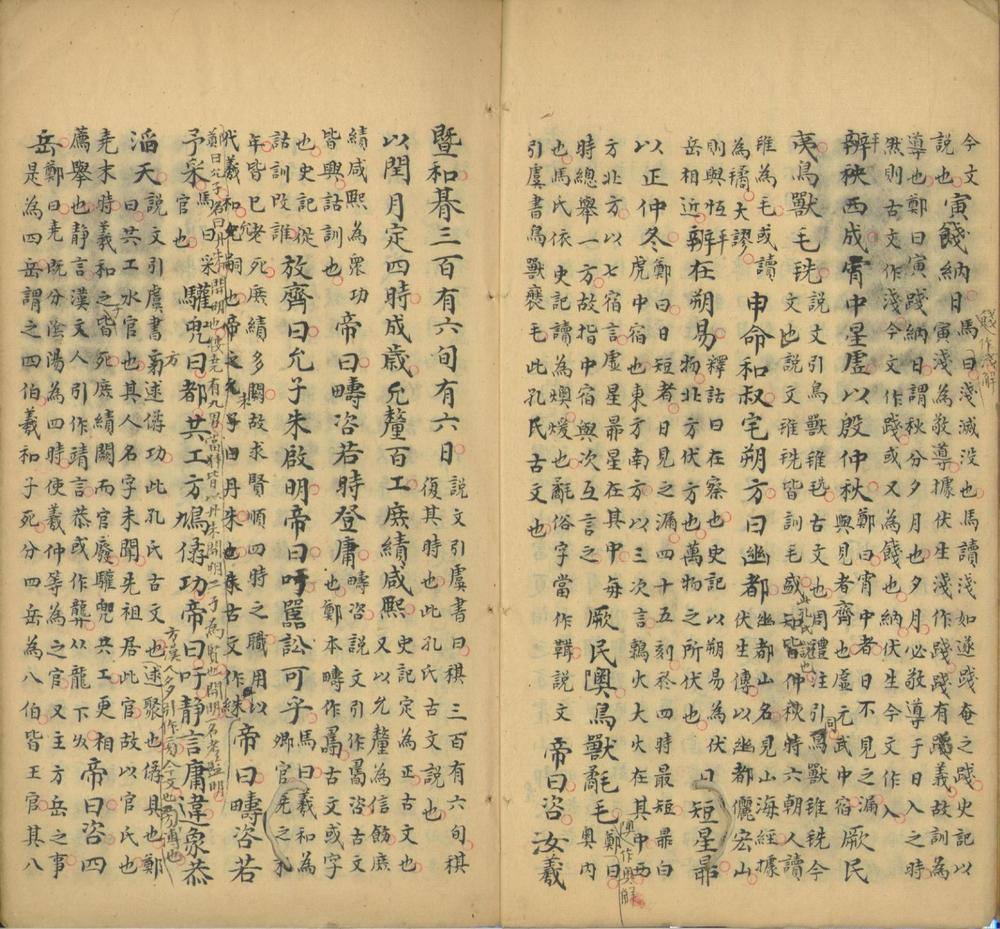 今文
說也寅餞納日馬曰淺滅没也馬讀淺如遂踐奄之踐史記以
導也鄭曰寅踐納日謂秋分夕月也夕月必敬導于日入之時
寅淺為敬導據伏生淺作踐踐有義故訓為
然則古文作淺今文作踐或又為餞也納伏生今文作入
辨秩西成宵中星虛以殷仲秋鄭曰宵中者日不見之漏
與見者齊也虛元武中宿厥民
夷鳥獸毛毨說文引鳥獸毨古文也周禮注引鳥獸毨今
文也說文毨訓毛
雖為毛或讀
為橘大謬申命和叔宅朔方曰幽都幽都山名見山海經據
伏生傳以幽都儷宏山
則與恆
岳相近辨在朔易釋詁曰在察也史記以朔易為伏
物北方伏方也萬物之所伏也日短星昴
以正仲冬鄭曰日短者日見之漏四十五刻於四時最短昴白
虎中宿也東方南方以三次言鶉火大火在其中西
方北方以七宿言虛星昴星在其中每
時總舉一方故指中宿與次互言之厥民奧鳥獸氄毛鄭曰
奧內
也馬氏依史記讀為燠煖也氄俗字當作䩸說文
引虞書鳥獸襃毛此孔氏古文也帝曰咨汝羲
暨和朞三百有六旬有六日說文引虞書曰稘三百有六旬稘
復其時也此孔氏古文說也
以閏月定四時成歲允釐百工庶績咸熙史記定為正古文也
又以允釐為信飭庶
績咸熙為衆功
皆興詁訓也帝曰疇咨若時登庸疇咨說文引作𠷎咨古文
也鄭本疇作𠷎古文或字
也史記從
詁訓改誰放齊曰允子朱啟明帝曰吁嚚訟可乎馬曰羲和為
卿官堯之末
年皆已老死庶績多闕故求賢順四時之職用以
代羲和允嗣也帝曰疇咨若
鄭曰帝堯允子名曰丹朱開明也
予采馬曰采
官也驩兜曰都共工方鳩僝功帝曰吁靜言庸違象恭
滔天說文引虞書旁逑僝功此孔氏古文也逑聚也僝具也鄭
曰共工水官也其人名字未聞先祖居此官故以官氏也
堯末時羲和之子皆死庶績闕而官廢驩兜共工更相
薦舉也靜言漢文人引作靖言恭或作龔以龍下从帝曰咨四
岳鄭曰堯既分陰陽為四時使羲仲等為之官又主方岳之事
是為四岳謂之四伯羲和子死分四岳為八伯皆王官其八